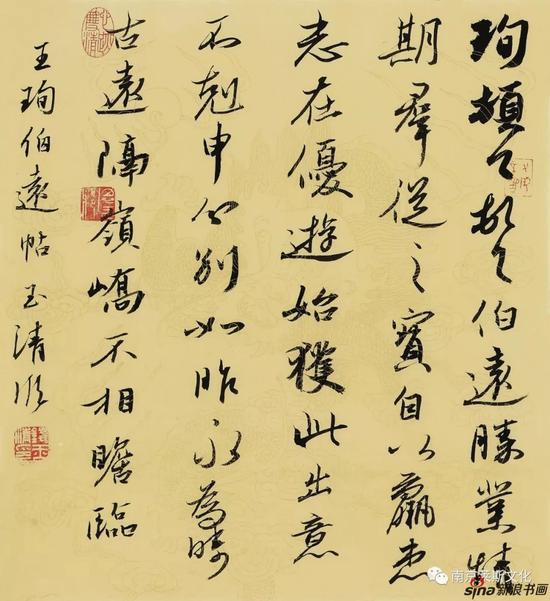 珣頓首頓首伯遠勝業情
期羣從之寶自以羸患
志在優遊始獲此出意
不剋申分別如昨永為疇
古遠隔嶺嶠不相瞻臨
王珣伯遠帖 玉清
南京斯文化
sina新浪书画